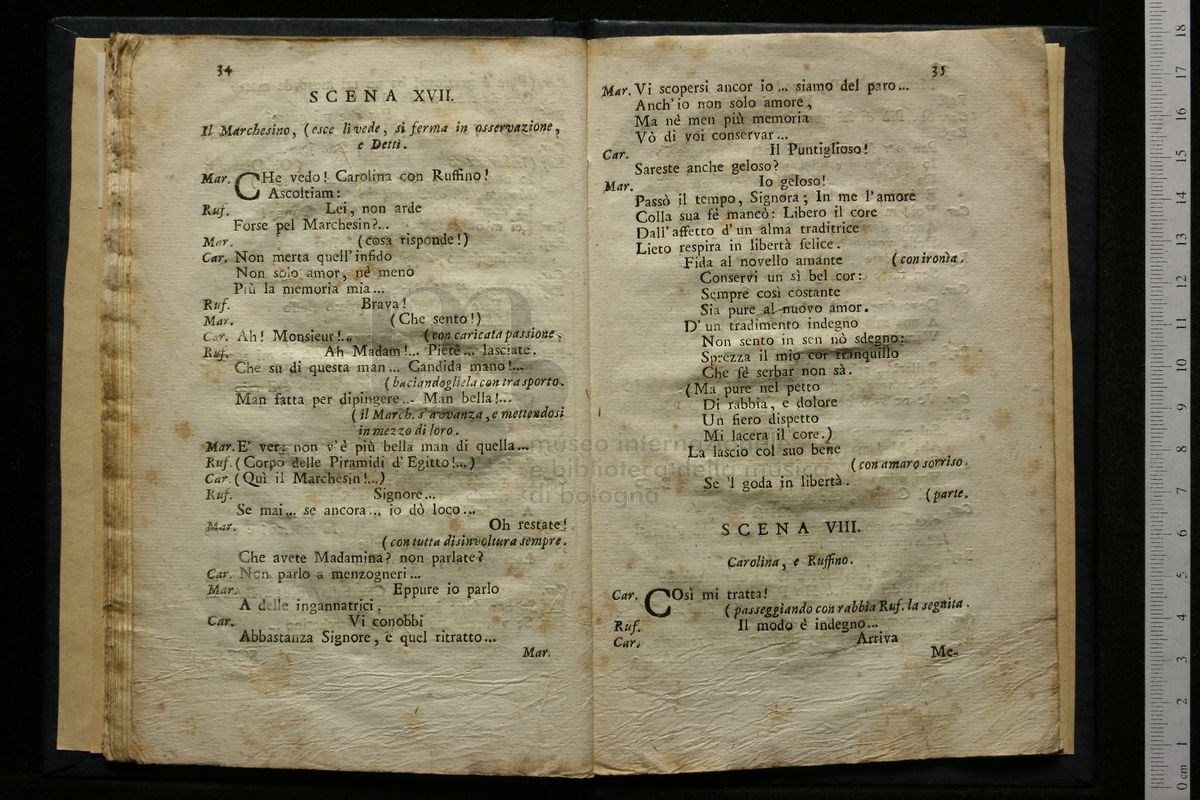 34
SCENA XVII.
Il Marchesino, (esce li vede, si ferma in osservazione,
e Detti.
Mar. CHe vedo! Carolina con Ruffino!
Ascoltiam:
Ruf. Lei, non arde
Forse pel Marchesin?...
Mar. (cosa risponde!)
Car. Non merta quell'infido
Non solo amor, nè meno
Più la memoria mia...
Ruf. Brava!
Mar. (Che sento!)
Car. Ah! Monsieur!.. (con caricata passione.
Ruf. Ah Madam!... Pietè... lasciate.
Che su di questa man... Candida mano!...
(baciandogliela con trasporto.
Man fatta per dipingere... Man bella!...
(il March. s'avvanza, e mettendosi
in mezzo di loro.
Mar. E' ver: non v'è più bella man di quella...
Ruf. (Corpo delle Piramidi d'Egitto!...)
Car. (Quì il Marchesin!...)
Ruf. Signore...
Se mai... se ancora... io dò loco...
Mar. Oh restate!
(con tutta disinvoltura sempre.
Che avete Madamina? non parlate?
Car. Non parlo a menzogneri...
Mar. Eppure io parlo
A delle ingannatrici.
Car. Vi conobbi
Abbastanza Signore, e quel ritratto...
Mar.
35
Mar. Vi scopersi ancor io... siamo del paro...
Anch'io non solo amore,
Ma nè men più memoria
Vò di voi conservar...
Car. Il Puntiglioso!
Sareste anche geloso?
Mar. Io geloso!
Passò il tempo, Signora; In me l'amore
Colla sua fè mancò: Libero il core
Dall'affetto d'un alma traditrice
Lieto respira in libertà felice.
Fida al novello amante (con ironìa.
Conservi un sì bel cor:
Sempre così costante
Sia pure al nuovo amor.
D'un tradimento indegno
Non sento in sen nò sdegno:
Sprezza il mio cor tranquillo
Che fè serbar non sà.
(Ma pure nel petto
Di rabbia, e dolore
Un fiero dispetto
Mi lacera il core.)
La lascio col suo bene
(con amaro sorriso.
Se 'l goda in libertà.
(parte.
SCENA VIII.
Carolina, e Ruffino.
Car. COsì mi tratta!
(passeggiando con rabbia Ruf. la seguita.
Ruf. Il modo è indegno...
Car. Arriva
Me-
museo internazionale
e biblioteca della musica
di bologna
0 cm 1 2 3 4 5 6 7 8 9 10 11 12 13 14 15 16 17 18